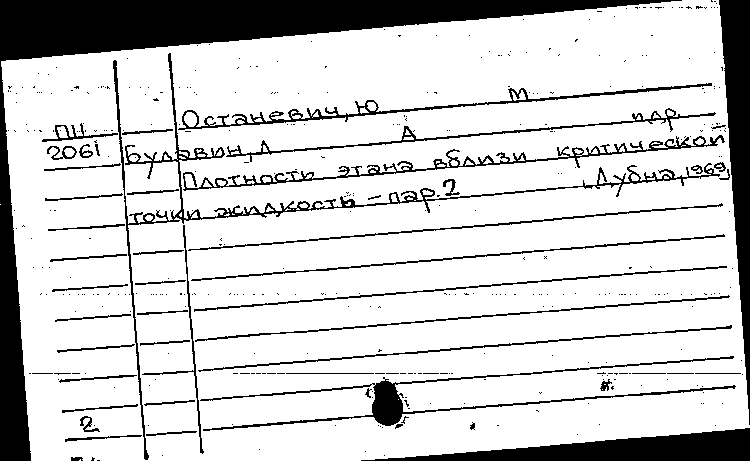 Останевич, Ю М
ПН
2061 Булавин, Л А и др.
Плотность этана вблизи критической
точки жидкость – пар. 2 , Дубна, 1969,
2